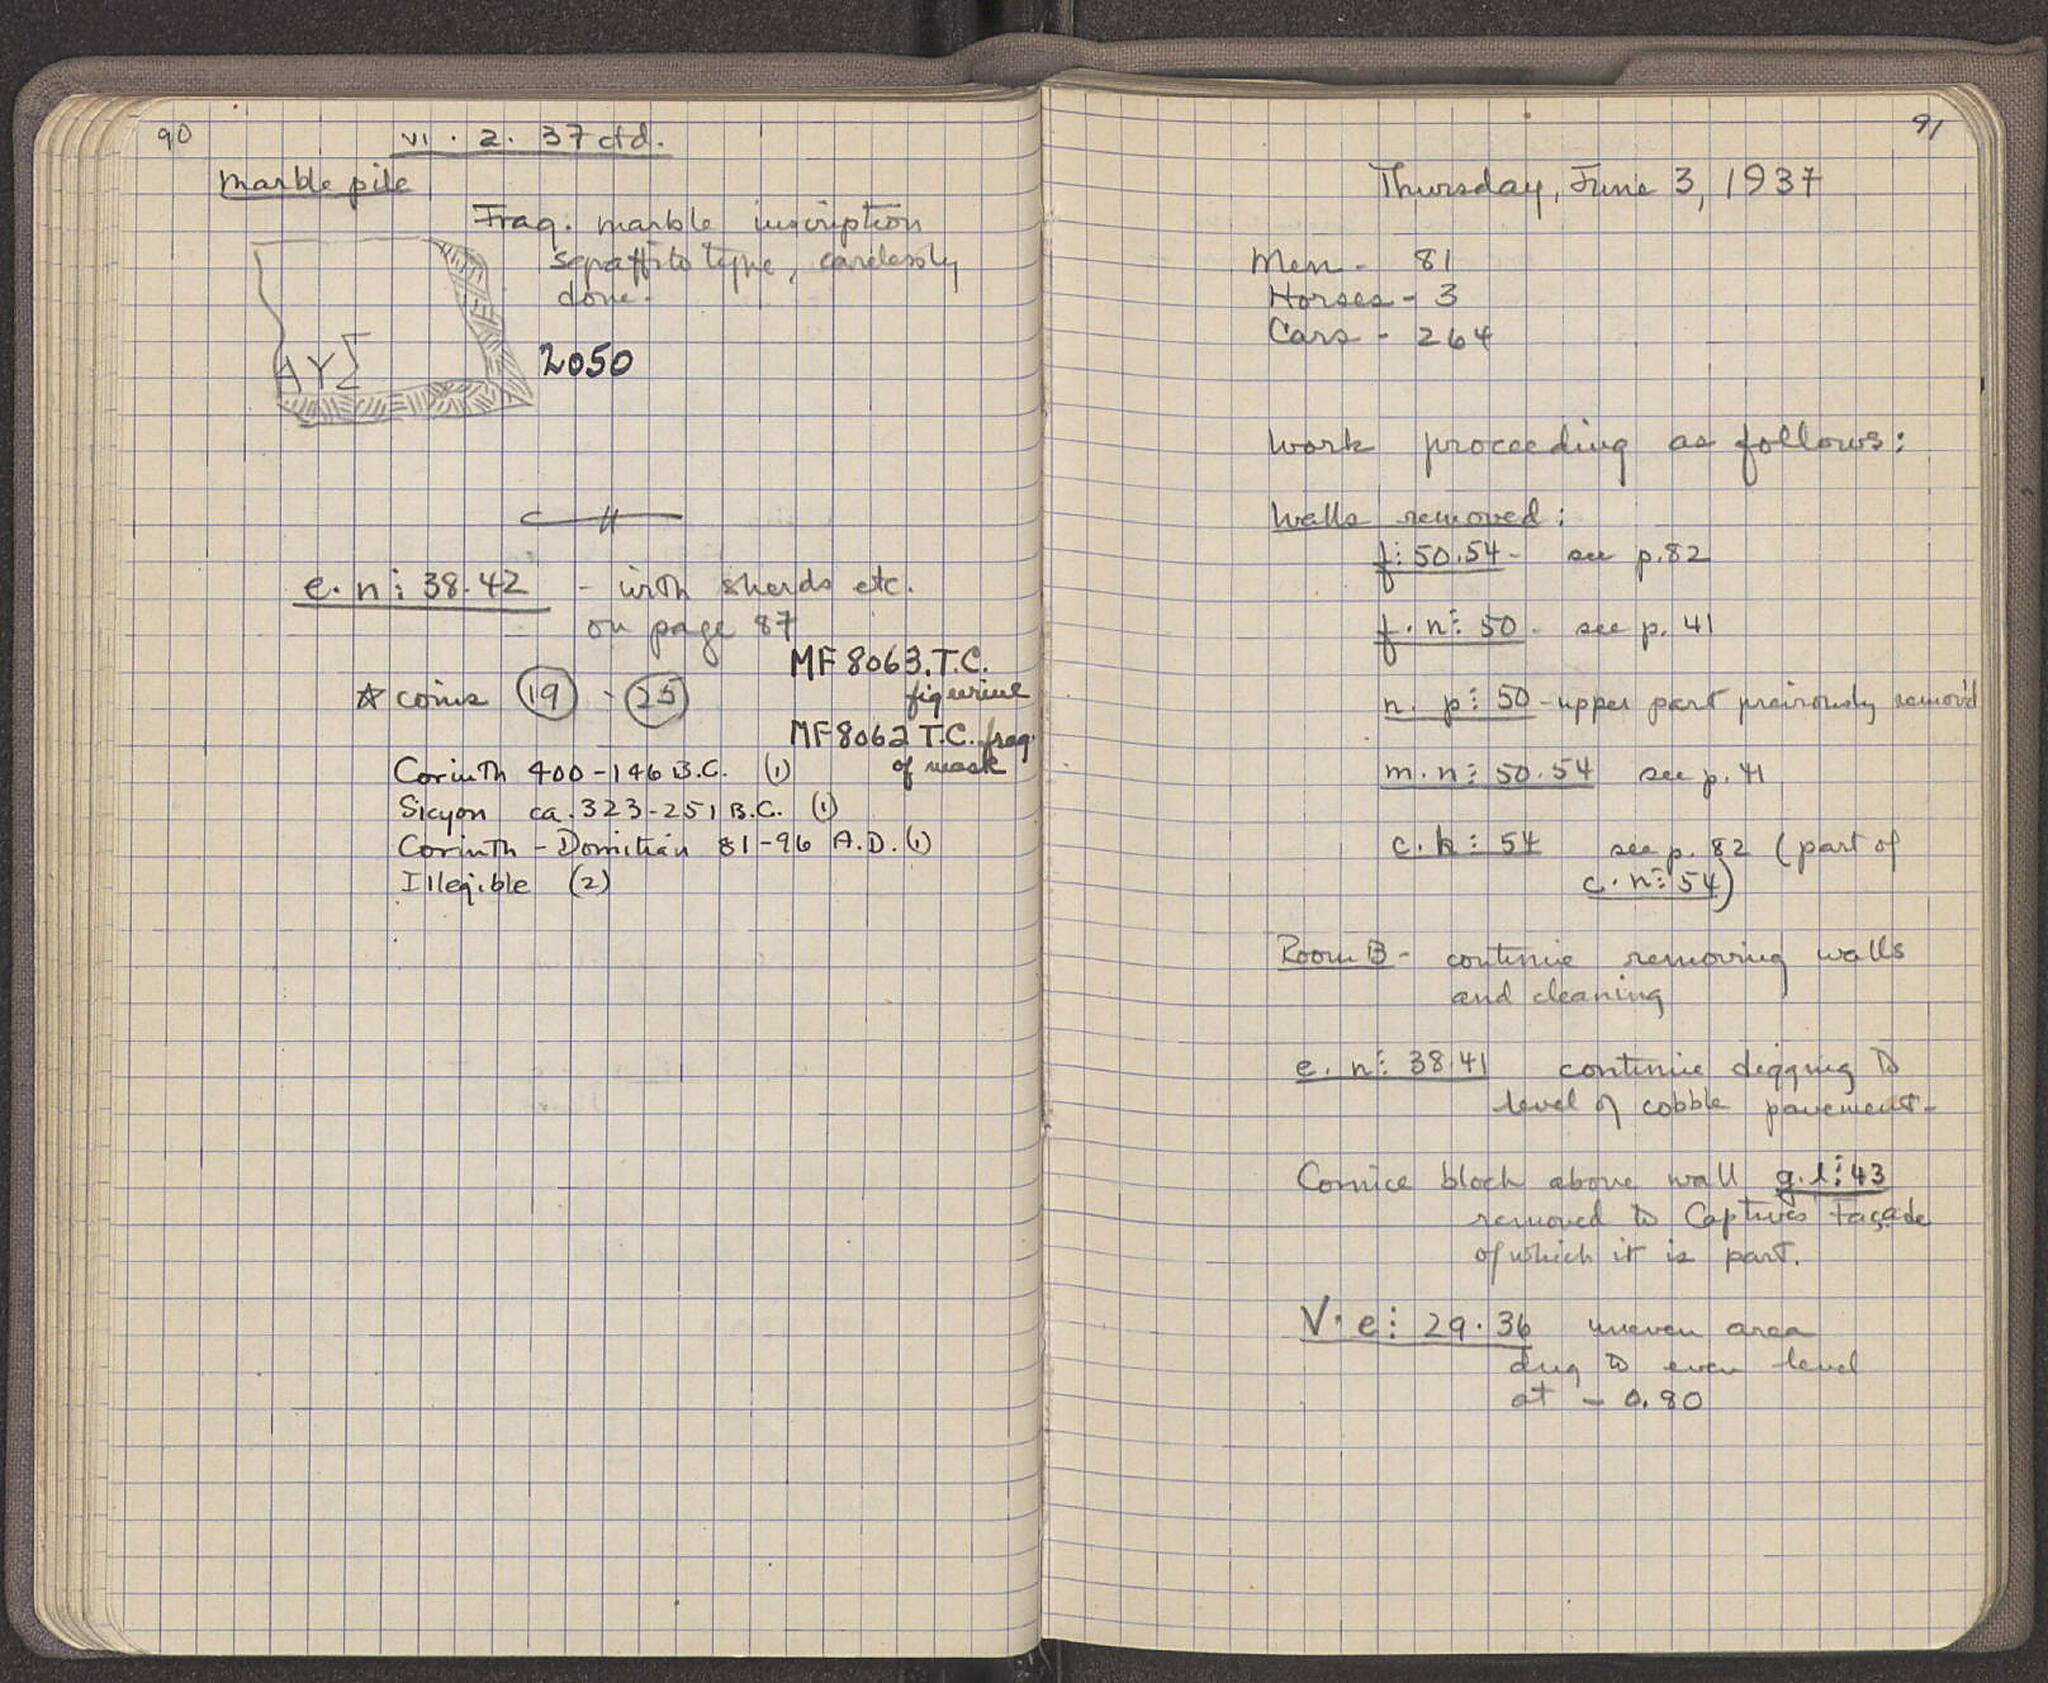 90
VI . 2. 37 ctd.
Marble pile
Frag. marble inscription
sgraffito type, carelessly
done.
ΑΥΣ
2050
e. n⋮ 38.42 - with sherds etc.
on page 87
MF 8063. T.C.
figurine
☆ coins 19 - 25
MF 8062 T.C. frag.
of mask
Corinth 400-146 B.C. (1)
Sicyon ca. 323-251 B.C. (1)
Corinth - Domitian 81-96 A.D. (1)
Illegible (2)
91
Thursday, June 3, 1937
Men - 81
Horses - 3
Cars - 264
Work proceeding as follows:
Walls removed:
f⋮ 50.54 - see p. 82
f. n⋮ 50 - see p. 41
n. p⋮ 50 - upper part previously remov'd
m. n⋮ 50.54 see p. 41
c. k⋮ 54 see p. 82 (part of
c. n⋮ 54)
Room B - continue removing walls
and cleaning
e. n⋮ 38.41 continue digging to
level of cobble pavement -
Cornice block above wall g. l⋮ 43
removed to Captives Façade
of which it is part.
V. e⋮ 29.36 uneven area
dug to even level
at - 0.80